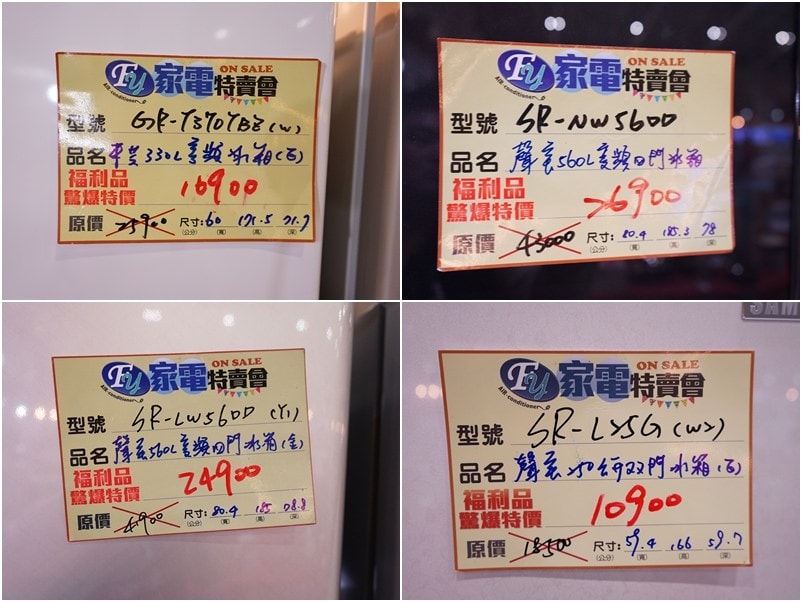 FY 家電特賣會 ON SALE
AIR conditioner
型號 GR-Y370TBZ (W)
品名 東芝330L變頻冰箱(白)
福利品
驚爆特價 16900
原價 25900 尺寸: 60 171.5 71.7
(公分) (寬) (高) (深)
FY 家電特賣會 ON SALE
AIR conditioner
型號 SR-NW560D
品名 聲寶560L變頻四門冰箱
福利品
驚爆特價 26900
原價 43000 尺寸: 80.4 185.3 78
(公分) (寬) (高) (深)
SAM
FY 家電特賣會 ON SALE
AIR conditioner
型號 SR-LW560D (Y1)
品名 聲寶560L變頻四門冰箱(金)
福利品
驚爆特價 24900
原價 尺寸: 80.4 185 78.8
(公分) (寬) (高) (深)
FY 家電特賣會 ON SALE
AIR conditioner
型號 SR-L25G (W2)
品名 聲寶250公升双門冰箱(白)
福利品
驚爆特價 10900
原價 18500 尺寸: 59.4 166 59.7
(公分) (寬) (高) (深)